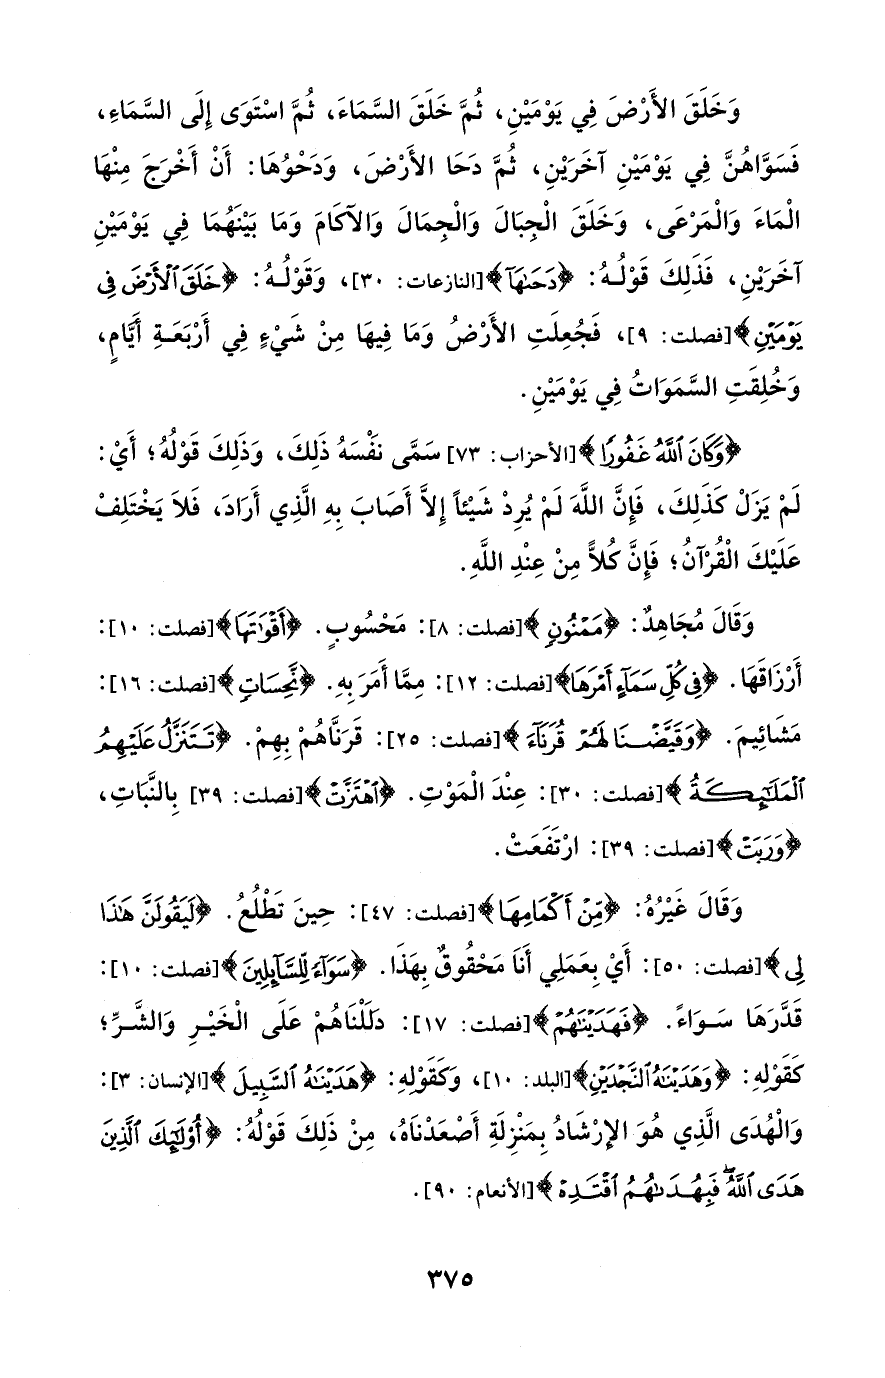 وَخَلَقَ الأَرْضَ فِي يَوْمَيْنِ، ثُمَّ خَلَقَ السَّمَاءَ، ثُمَّ اسْتَوَى إِلَى السَّمَاءِ،
فَسَوَّاهُنَّ فِي يَوْمَيْنِ آخَرَيْنِ، ثُمَّ دَحَا الأَرْضَ، وَدَحْوُهَا: أَنْ أَخْرَجَ مِنْهَا
الْمَاءَ وَالْمَرْعَى، وَخَلَقَ الْجِبَالَ وَالْجِمَالَ وَالآكَامَ وَمَا بَيْنَهُمَا فِي يَوْمَيْنِ
آخَرَيْنِ، فَذَلِكَ قَوْلُهُ: ﴿دَحَىٰهَآ﴾ [النازعات: ٣٠]، وَقَوْلُهُ: ﴿خَلَقَ ٱلْأَرْضَ فِي
يَوْمَيْنِ﴾ [فصلت: ٩]، فَجُعِلَتِ الأَرْضُ وَمَا فِيهَا مِنْ شَيْءٍ فِي أَرْبَعَةِ أَيَّامٍ،
وَخُلِقَتِ السَّمَوَاتُ فِي يَوْمَيْنِ.
﴿وَكَانَ ٱللَّهُ غَفُورًا﴾ [الأحزاب: ٧٣] سَمَّى نَفْسَهُ ذَلِكَ، وَذَلِكَ قَوْلُهُ؛ أَيْ:
لَمْ يَزَلْ كَذَلِكَ، فَإِنَّ اللَّهَ لَمْ يُرِدْ شَيْئاً إِلاَّ أَصَابَ بِهِ الَّذِي أَرَادَ، فَلاَ يَخْتَلِفْ
عَلَيْكَ الْقُرْآنُ؛ فَإِنَّ كُلاًّ مِنْ عِنْدِ اللَّهِ.
وَقَالَ مُجَاهِدٌ: ﴿مَمْنُونٍ﴾ [فصلت: ٨]: مَحْسُوبٍ. ﴿أَقْوَٰتَهَا﴾ [فصلت: ١٠]:
أَرْزَاقَهَا. ﴿فِي كُلِّ سَمَآءٍ أَمْرَهَا﴾ [فصلت: ١٢]: مِمَّا أَمَرَ بِهِ. ﴿نَّحِسَاتٍ﴾ [فصلت: ١٦]:
مَشَائِيمَ. ﴿وَقَيَّضْنَا لَهُمْ قُرَنَآءَ﴾ [فصلت: ٢٥]: قَرَنَّاهُمْ بِهِمْ. ﴿تَتَنَزَّلُ عَلَيْهِمُ
ٱلْمَلَٰٓئِكَةُ﴾ [فصلت: ٣٠]: عِنْدَ الْمَوْتِ. ﴿ٱهْتَزَّتْ﴾ [فصلت: ٣٩] بِالنَّبَاتِ،
﴿وَرَبَتْ﴾ [فصلت: ٣٩]: ارْتَفَعَتْ.
وَقَالَ غَيْرُهُ: ﴿مِّنْ أَكْمَامِهَا﴾ [فصلت: ٤٧]: حِينَ تَطْلُعُ. ﴿لَيَقُولَنَّ هَٰذَا
لِي﴾ [فصلت: ٥٠]: أَيْ بِعَمَلِي أَنَا مَحْقُوقٌ بِهَذَا. ﴿سَوَآءً لِّلسَّآئِلِينَ﴾ [فصلت: ١٠]:
قَدَّرَهَا سَوَاءً. ﴿فَهَدَيْنَٰهُمْ﴾ [فصلت: ١٧]: دَلَلْنَاهُمْ عَلَى الْخَيْرِ وَالشَّرِّ؛
كَقَوْلِهِ: ﴿وَهَدَيْنَٰهُ ٱلنَّجْدَيْنِ﴾ [البلد: ١٠]، وَكَقَوْلِهِ: ﴿هَدَيْنَٰهُ ٱلسَّبِيلَ﴾ [الإنسان: ٣]:
وَالْهُدَى الَّذِي هُوَ الإِرْشَادُ بِمَنْزِلَةِ أَصْعَدْنَاهُ، مِنْ ذَلِكَ قَوْلُهُ: ﴿أُوْلَٰٓئِكَ ٱلَّذِينَ
هَدَى ٱللَّهُ فَبِهُدَىٰهُمُ ٱقْتَدِهْ﴾ [الأنعام: ٩٠].
٣٧٥